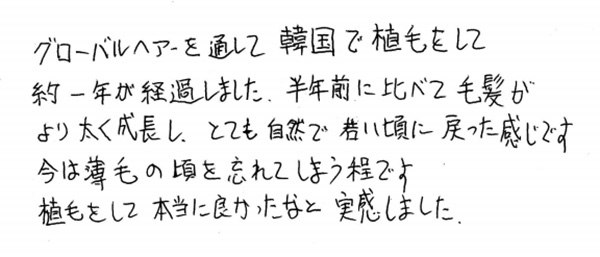 グローバルヘアーを通して韓国で植毛をして
約一年が経過しました. 半年前に比べて毛髪が
より太く成長し、とても自然で若い頃に戻った感じです
今は薄毛の頃を忘れてしまう程です
植毛をして本当に良かったなと実感しました.